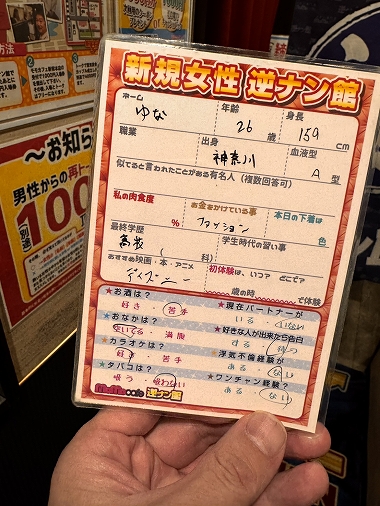 新規女性 逆ナン館
ホーム 年齢 身長
ゆな 26 歳 159 cm
職業 出身 血液型
神奈川 A 型
似てると言われたことがある有名人（複数回答可）
私の肉食度 お金をかけている事 本日の下着は
% ファッション 色
最終学歴 学生時代の習い事
高校 ( 科)
おすすめ映画・本・アニメ 初体験は、いつ？ どこで？
ディズニー 歳の時 で体験
★お酒は？ ★現在パートナーが
好き ・ 苦手 いる ・ いない
★おなかは？ ★好きな人が出来たら告白
空いてる ・ 満腹 する ・ 待つ
★カラオケは？ ★浮気不倫経験が
好き ・ 苦手 ある ・ ない
★タバコは？ ★ワンチャン経験が？
吸う ・ 吸わない ある ・ ない
逆ナン館
方法
〜お知ら
男性からの再ト
別途
100